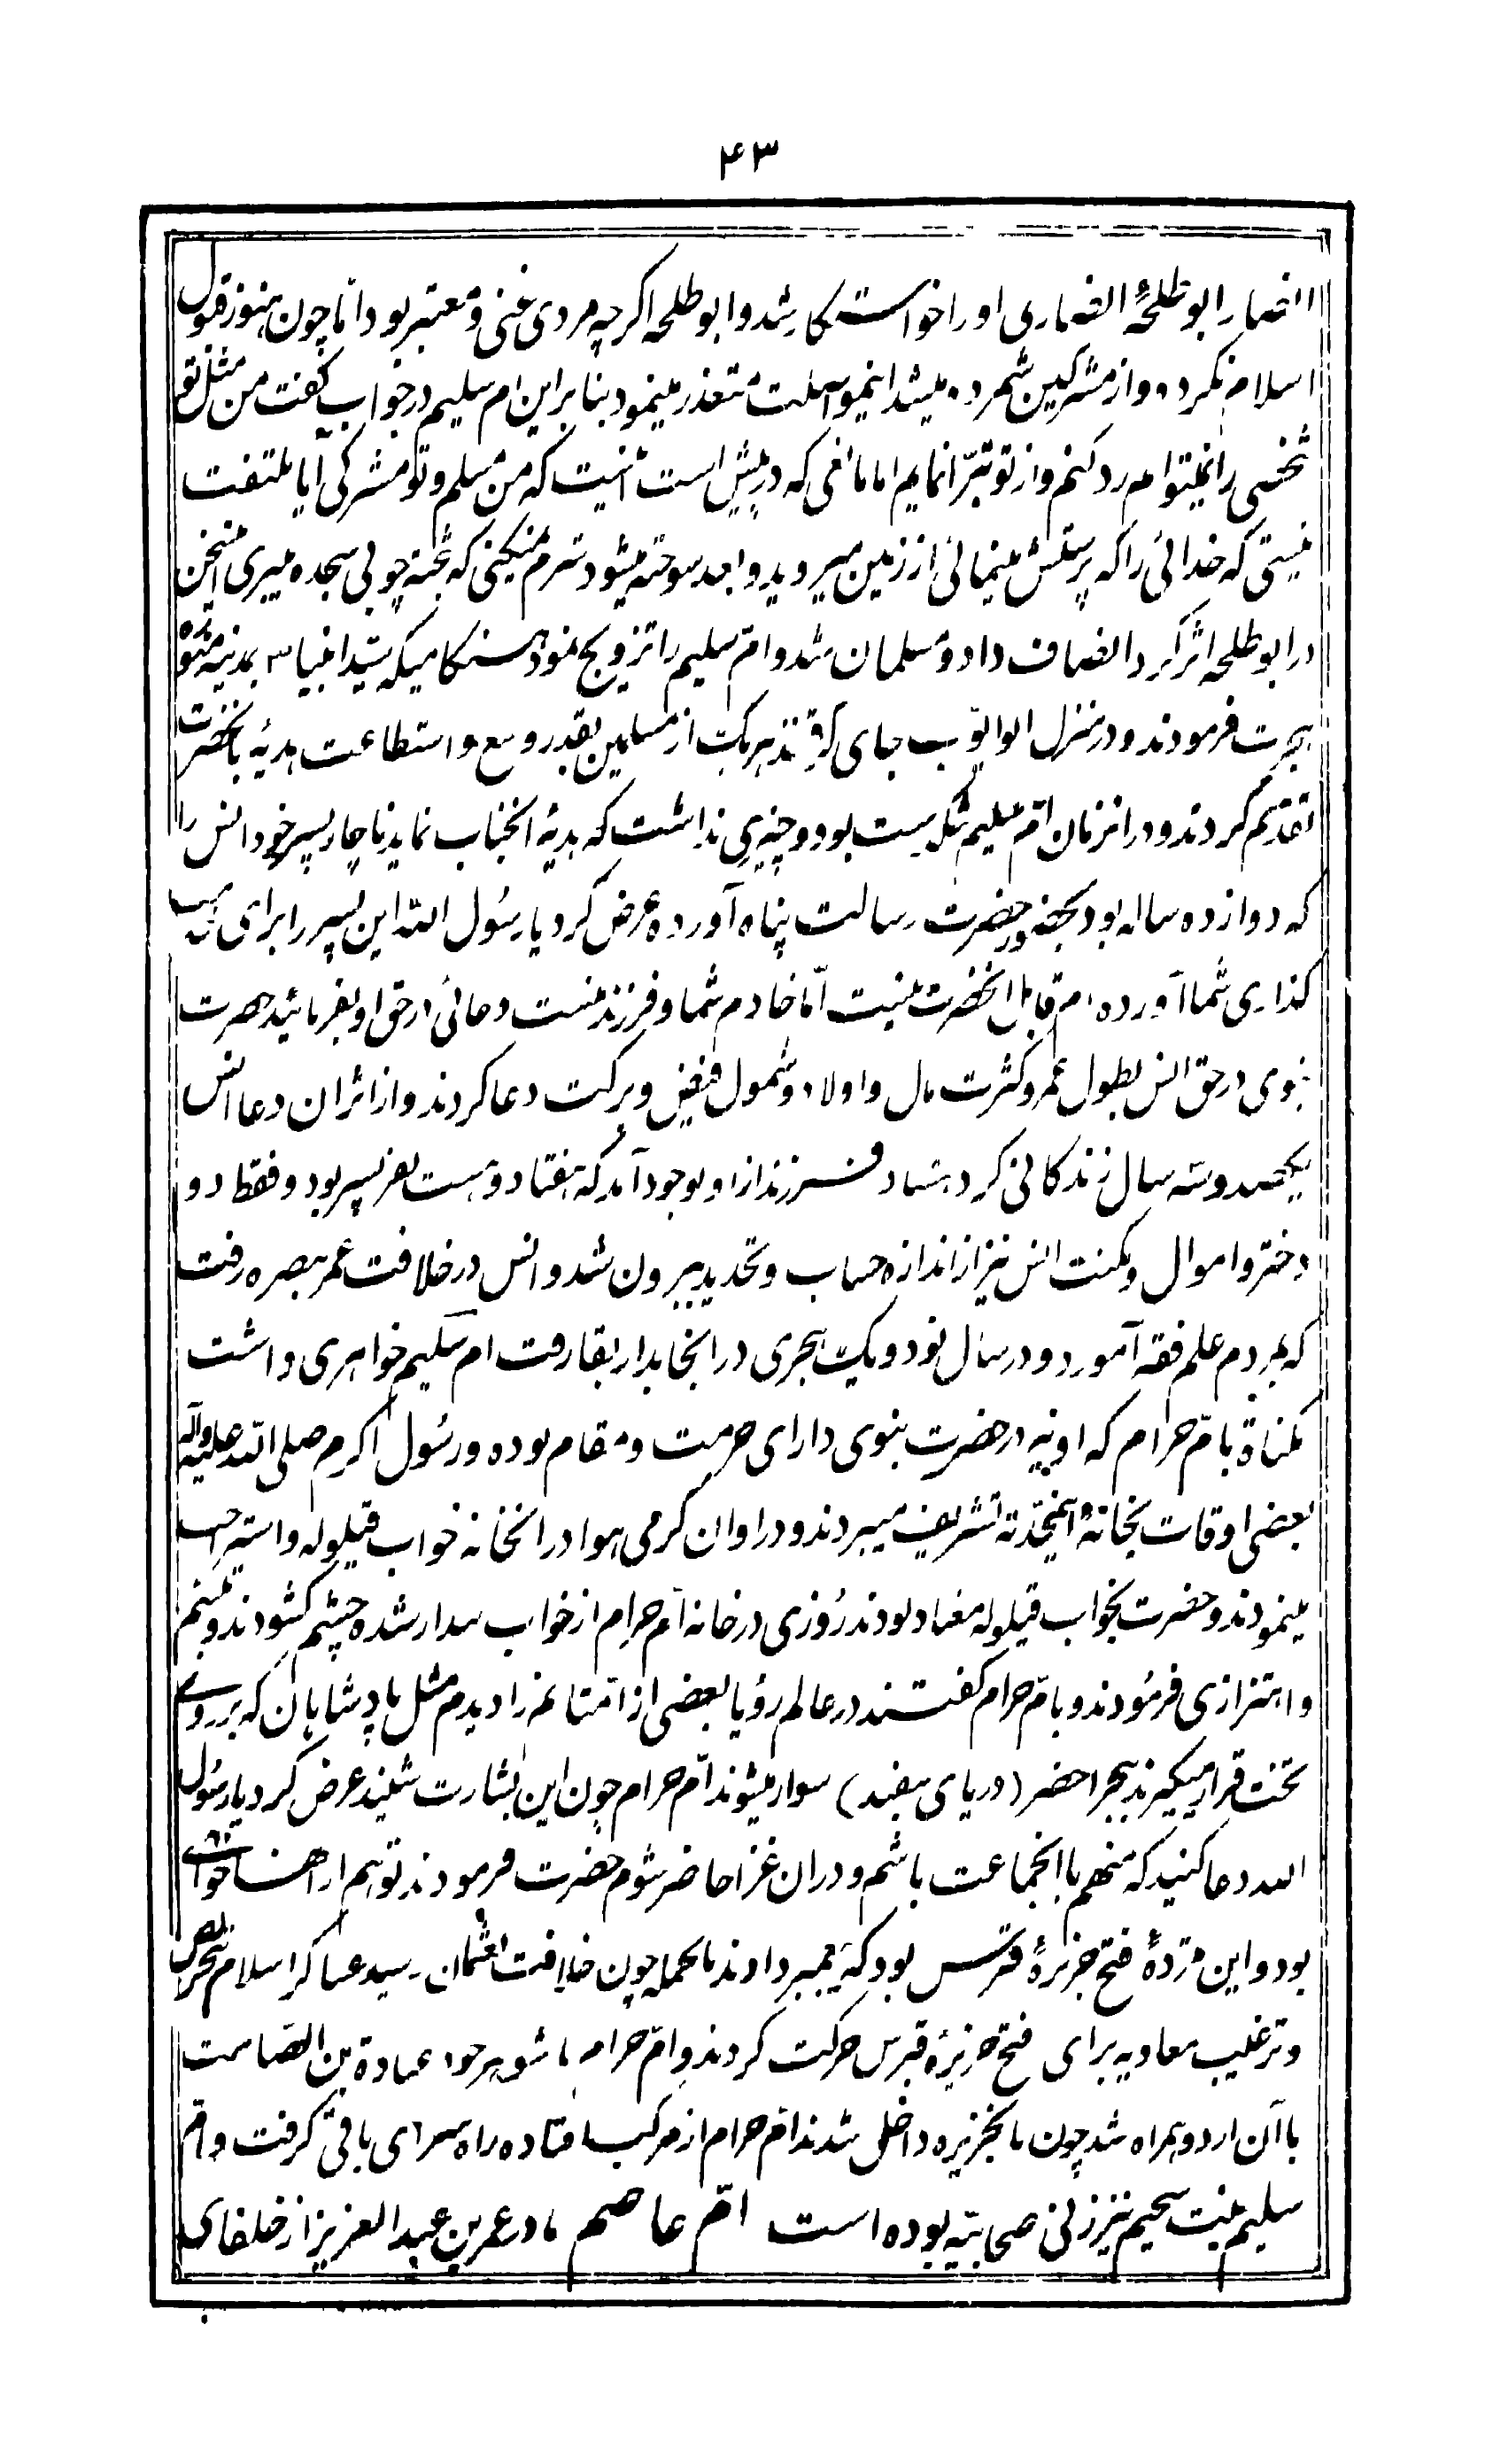 ۴۳
انصار ابو طلحهٔ انصاری او را خواستکار شد و ابو طلحه اکر چه مردی غنی و معتبر بود اما چون هنوز قبول
اسلام نکرده و از مشرکین شمرده میشد اینمواصلت متعذر مینمود بنا بر این ام سلیم در جواب کفت من مثل تو
شخصی را نمیتوانم رد کنم و از تو تبرّا نمایم اما مانعی که در پیش است اینست که من مسلم و تو مشرکی آیا ملتفت
نیستی که خدائی را که پرستش مینمائی از زمین میروید و بعد سوخته میشود شرم نمیکنی که بتخته چوبی سجده میبری اینسخن
در ابو طلحه اثر کرد انصاف داد و مسلمان شد و امّ سلیم را تزویج نمود هنکامیکه سیّد انبیا ص بمدینه منوّره
هجرت فرمودند و در منزل ابو ایّوب جای کرفتند هریک از مسلمین بقدر وسع و استطاعت هدیهٔ بانحضرت
تقدیم کردند و در انزمان امّ سلیم تنکدست بود و چیزی نداشت که هدیهٔ انجناب نماید ناچار پسر خود انس را
که دوازده ساله بود بحضور حضرت رسالت پناه آورده عرض کرد یا رسُول الله این پسر را برای خدمت
کذاری شما آورده‌ام قابل انحضرت نیست امّا خادم شما و فرزند منست دعائی در حق او بفرمائید حضرت
نبوی در حق انس بطول عمر و کثرت مال و اولاد و شمول فیض و برکت دعا کردند و از اثر ان دعا انس
یکصد و سه سال زندکانی کرد هشتاد فرزند از او بوجود آمد که هفتاد و هشت نفر پسر بود و فقط دو
دختر و اموال و مکنت انس نیز از اندازه حساب و تحدید بیرون شد و انس در خلافت عمر ببصره رفت
که بمردم علم فقه آموزد و در سال نود و یک هجری در انجا بدار بقا رفت ام سلیم خواهری داشت
مکناة بامّ حرام که او نیز در حضرت نبوی دارای حرمت و مقام بوده و رسُول اکرم صلی الله علیه و آله
بعضی اوقات بخانهٔ اینمخدّره تشریف میبردند و در اوان کرمی هوا در انخانه خواب قیلوله و استراحت
مینمودند و حضرت بخواب قیلوله معتاد بودند رُوزی در خانه امّ حرام از خواب بیدار شده چشم کشودند و تبسّم
و اهتزازی فرمُودند و بامّ حرام کفتند در عالم رؤیا بعضی از امّتانم را دیدم مثل پادشاهان که بر روی
تخت قرار میکیرند ببحر اخضر (دریای سفید) سوار میشوند امّ حرام چون این بشارت شنید عرض کرد یا رسُول
الله دعا کنید که منهم با انجماعت باشم و در ان غزا حاضر شوم حضرت فرمودند تو هم از انها خواهی
بود و این مژدهٔ فتح جزیرهٔ قبرس بود که پیمبر دادند بالجمله چون خلافت بعثمان رسید عساکر اسلام بتحریص
و ترغیب معاویه برای فتح جزیرهٔ قبرس حرکت کردند و امّ حرام با شوهر خود عبادة بن الصّامت
با آن اردو همراه شد چون بانجزیره داخل شدند امّ حرام از مرکب افتاده راه سرای باقی کرفت و امّ
سلیم بنت سحیم نیز زنی صحابیّه بوده است امّ عاصم مادر عمر بن عبد العزیز از خلفای